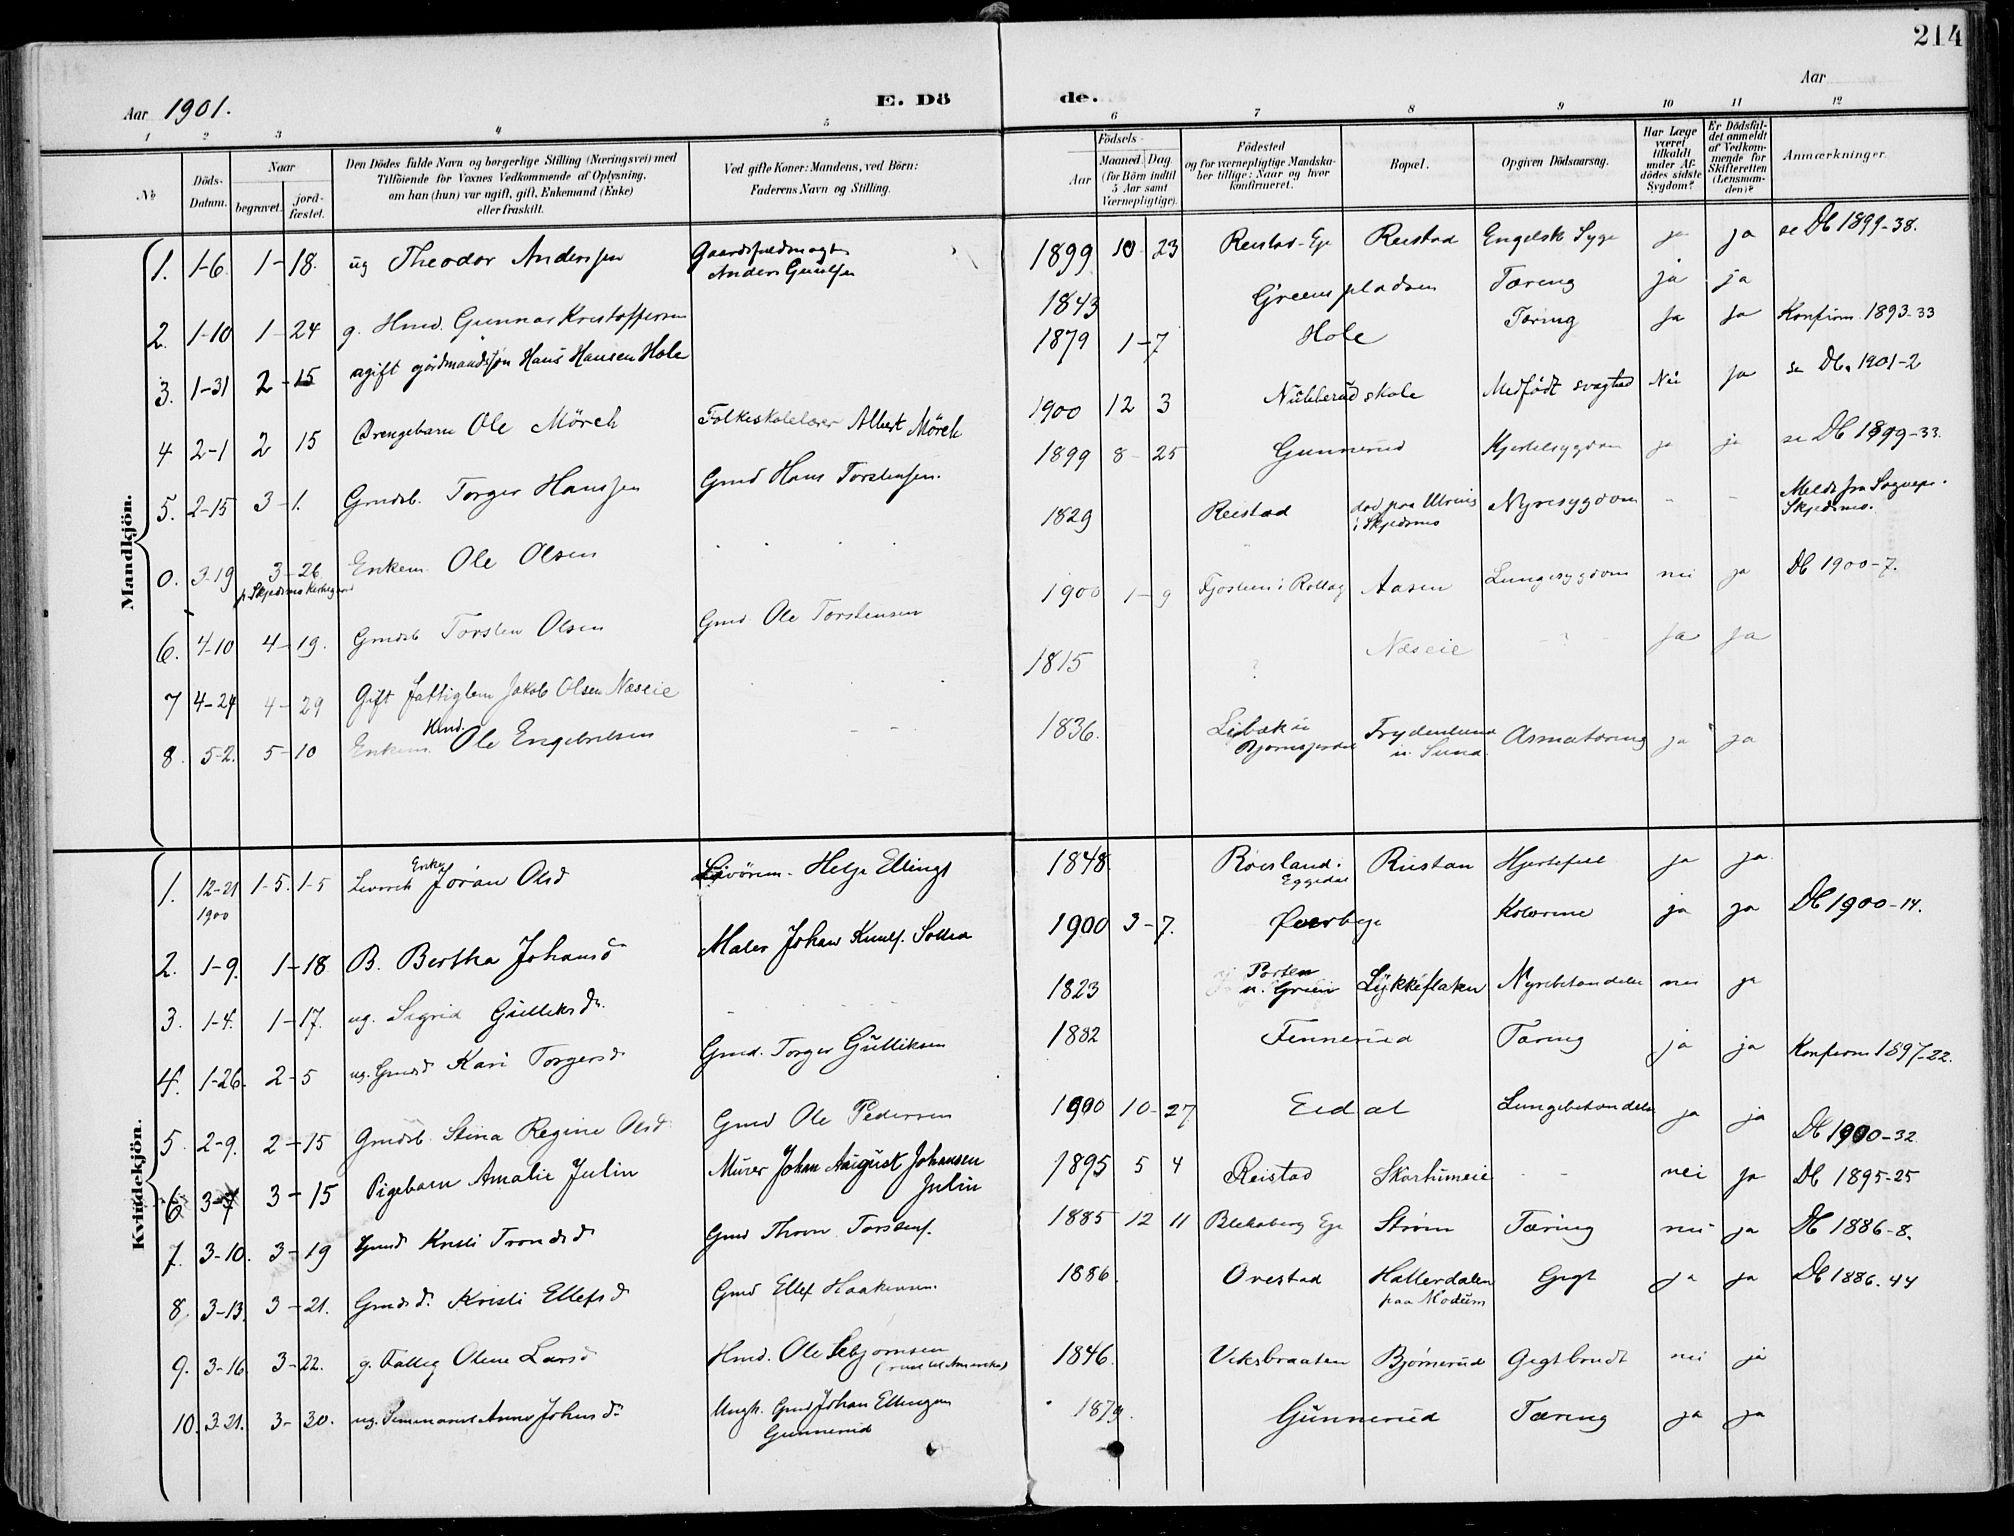 214
Aar 1901. E. Dö
de. Aar
1 2 3 4 5 6 7 8 9 10 11 12
No
Döds-Datum.
Naar
begravet.
jord-fæstet.
Den Dödes fulde Navn og borgerlige Stilling (Næringsvei) med
Tilföiende for Voxnes Vedkommende af Oplysning,
om han (hun) var ugift, gift, Enkemand (Enke)
eller fraskilt.
Ved gifte Koner: Mandens, ved Börn:
Faderens Navn og Stilling.
Födsels-
Aar
Maaned. Dag.
(for Börn indtil
5 Aar samt
Værnepligtige).
Födested
og for værnepligtige Mandska-
ber tillige: Naar og hvor
konfirmeret.
Bopæl.
Opgiven Dödsaarsag.
Har Læge
været
tilkaldt
under Af-
dödes sidste
Sygdom?
Er Dödsfal-
det anmeldt
af Vedkom-
mende for
Skifteretten
(Lensman-
den)?
Anmærkninger.
Mandkjön.
1. 1-6 1-18. ug Theodor Anderssen Gaardsfuldmægt Anders Guulsen 1899 10 23 Reistad-Eje Reistad Engelsk Syge ja ja se Db 1899-38.
2. 1-10 1-24 g. Hmd. Gunnar Kristoffersen 1843 Greensplads Tæring ja ja
3. 1-31 2-15 ugift gårdmandssøn Hans Hansen Hole 1879 1-7 Hole Tæring ja ja Konfirm. 1893-33
4 2-1 2 15 Drengebarn Ole Mörch Folkeskolelærer Albert Mörch 1900 12 3 Nubberud skole Medfødt svaghed Nei ja se Db. 1901-2
5. 2-15 3-1. Gmdsb. Torger Hanssen Gmd Hans Torstensen. 1899 8-25 Gunnerud Kjertelsygdom ja ja se Db 1899-33.
0. 3-19 3-26 p. Skjedsmo Kirkegaard Enkem. Ole Olsen 1829 Reistad død paa i Skjedsmo Nyresygdom - - Meldt fra Sognepr. Skjedsmo.
6. 4-10 4-19. Gmdsb Torsten Olsen Gmd Ole Torstensen 1900 1-9 i Rollag Aasen Lungesygdom nei ja Db 1900-7.
7 4-24 4-29 Gift fattiglem Jakob Olsen Næseie 1815 ? Næseie - ? - ja ja
8. 5-2. 5-10 Enkem. Hmd. Ole Engebretsen - - 1836. Frydenlund u. Sund ja ja
Kvindekjön.
1. 12-21 1900 1-5. 1-5 Enke Jöran Olsd Helje Ellings 1848. Roisland. Eggedal Riistan Hjertefeil ja ja
2. 1-9. 1-18 B. Bertha Johansd Maler Johan Knuds. 1900 3-7. Øverbye Kolerine ja ja Db 1900-14.
3. 1-4. 1-17. ug. Sigrid Gulliksdr. 1823 Porten u. Green Lykkeflaken Nyrebetændelse nei ja
4. 1-26. 2-5 ug. Gmdsd Kari Torgersd Gmd. Torger Gulliksen 1882 Finnerud Tæring ja ja Konfirm 1897-22.
5. 2-9. 2-15 Gmdsb. Stina Regine Olsd Gmd Ole Pedersen 1900 10-27 Eidal Lungebetændelse ja ja Db 1900-32
6 3-7 3-15 Pigebarn Amalie Julin Murer Johan August Johansen Julin 1895 5 4 Reistad Skarhumeie - - nei ja Db 1895-25
7. 3-10. 3-19 Gmdsd Kristi Trondsd Gmd Thron Torstens. 1885 12 11 Eje Strøm Tæring nei ja Db 1886-8.
8. 3-13. 3-21. Gmdsd. Kristi Ellefsd Gmd Ellef Haakensen. 1886. Ovestad Hallerdalen paa Modum Gigt ja ja Db 1886-44
9. 3-16. 3-22. g. Fattig Olene Larsd Hmd. Ole Sebjørnsen (reist til Amerika) 1846. Viksbraaten Bjørnerud Gigtbrudt nei ja
10. 3-21. 3-30. ug. Anne Johansdr. Gmd Johan Ellingsen Gunnerud 1879. Gunnerud Tæring ja ja